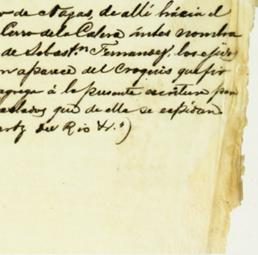 o de Nagas, de allé hácia el
Cerro de la Calera ántes nombra
de Sebastn Fernandez, los
n aparece del Croquis que
agrega á la presente escritura par
traslados que de ella se espidan
del Rio &.a)